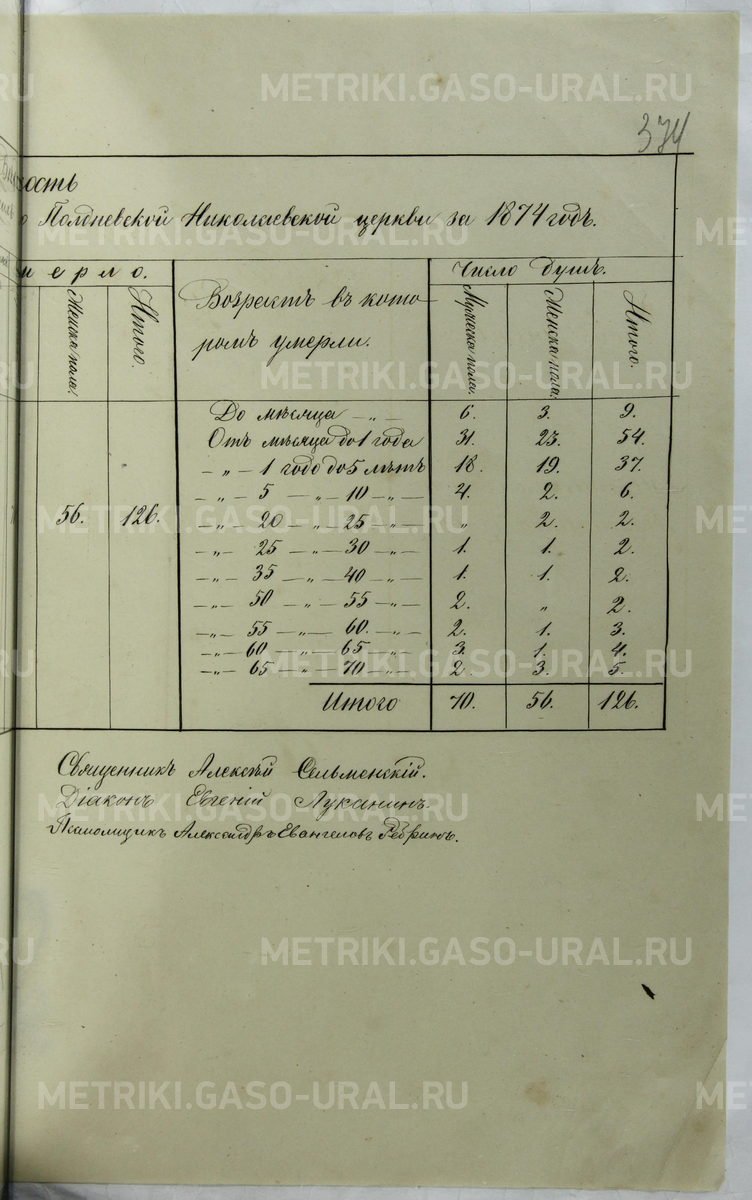 374
ость
Полдневской Николаевской церкви за 1874 годъ.
мерло.
Женска пола.
Итого.
Возрастъ въ кото-
ромъ умерли.
Число душъ.
Мужеска пола.
Женска пола.
Итого.
До мѣсяца — „ — 6. 3. 9.
Отъ мѣсяца до 1 года 31. 23. 54.
— „ — 1 года до 5 лѣтъ 18. 19. 37.
— „ — 5 — „ — 10 — „ — 4. 2. 6.
56. 126. — „ — 20 — „ — 25 — „ — „ 2. 2.
— „ — 25 — „ — 30 — „ — 1. 1. 2.
— „ — 35 — „ — 40 — „ — 1. 1. 2.
— „ — 50 — „ — 55 — „ — 2. „ 2.
— „ — 55 — „ — 60. — „ — 2. 1. 3.
— „ — 60 — „ — 65 — „ — 3. 1. 4.
— „ — 65 — „ — 70 — „ — 2. 3. 5.
Итого 70. 56. 126.
Священникъ Алексѣй Сельменскій.
Діаконъ Евгеній Луканинъ.
Псаломщикъ Александръ Евангеловъ Ребринъ.
METRIKI.GASO-URAL.RU